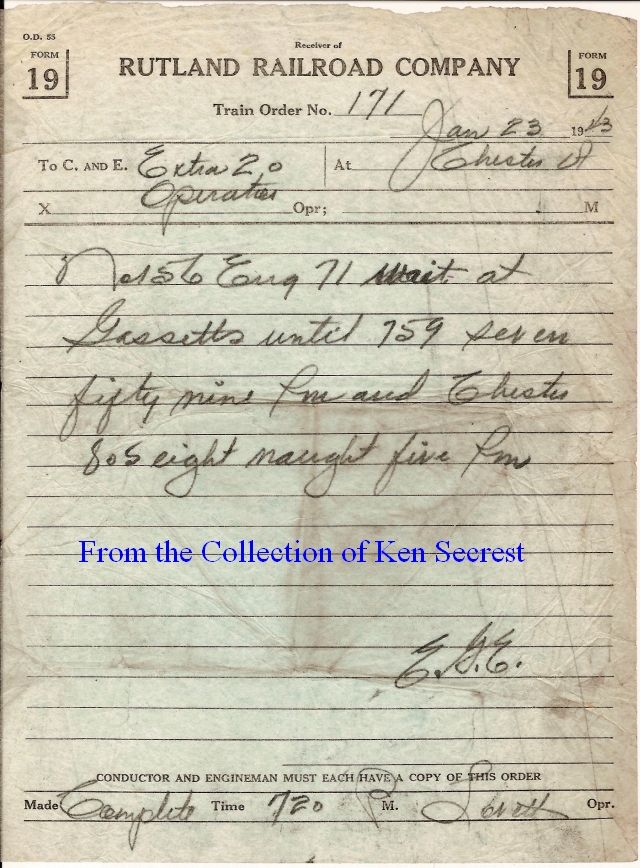 O.D. 55
Receiver of
FORM 19 RUTLAND RAILROAD COMPANY FORM 19
Train Order No. 171
Jan 23 1943
To C. AND E. Extra 20 At Chester
Operator
X Opr; M
No 156 Eng 71 wait at
Gassetts until 759 seven
fifty nine Pm and Chester
805 eight naught five Pm
From the Collection of Ken Secrest
E.G.E.
CONDUCTOR AND ENGINEMAN MUST EACH HAVE A COPY OF THIS ORDER
Made Complete Time 720 P M. Opr.